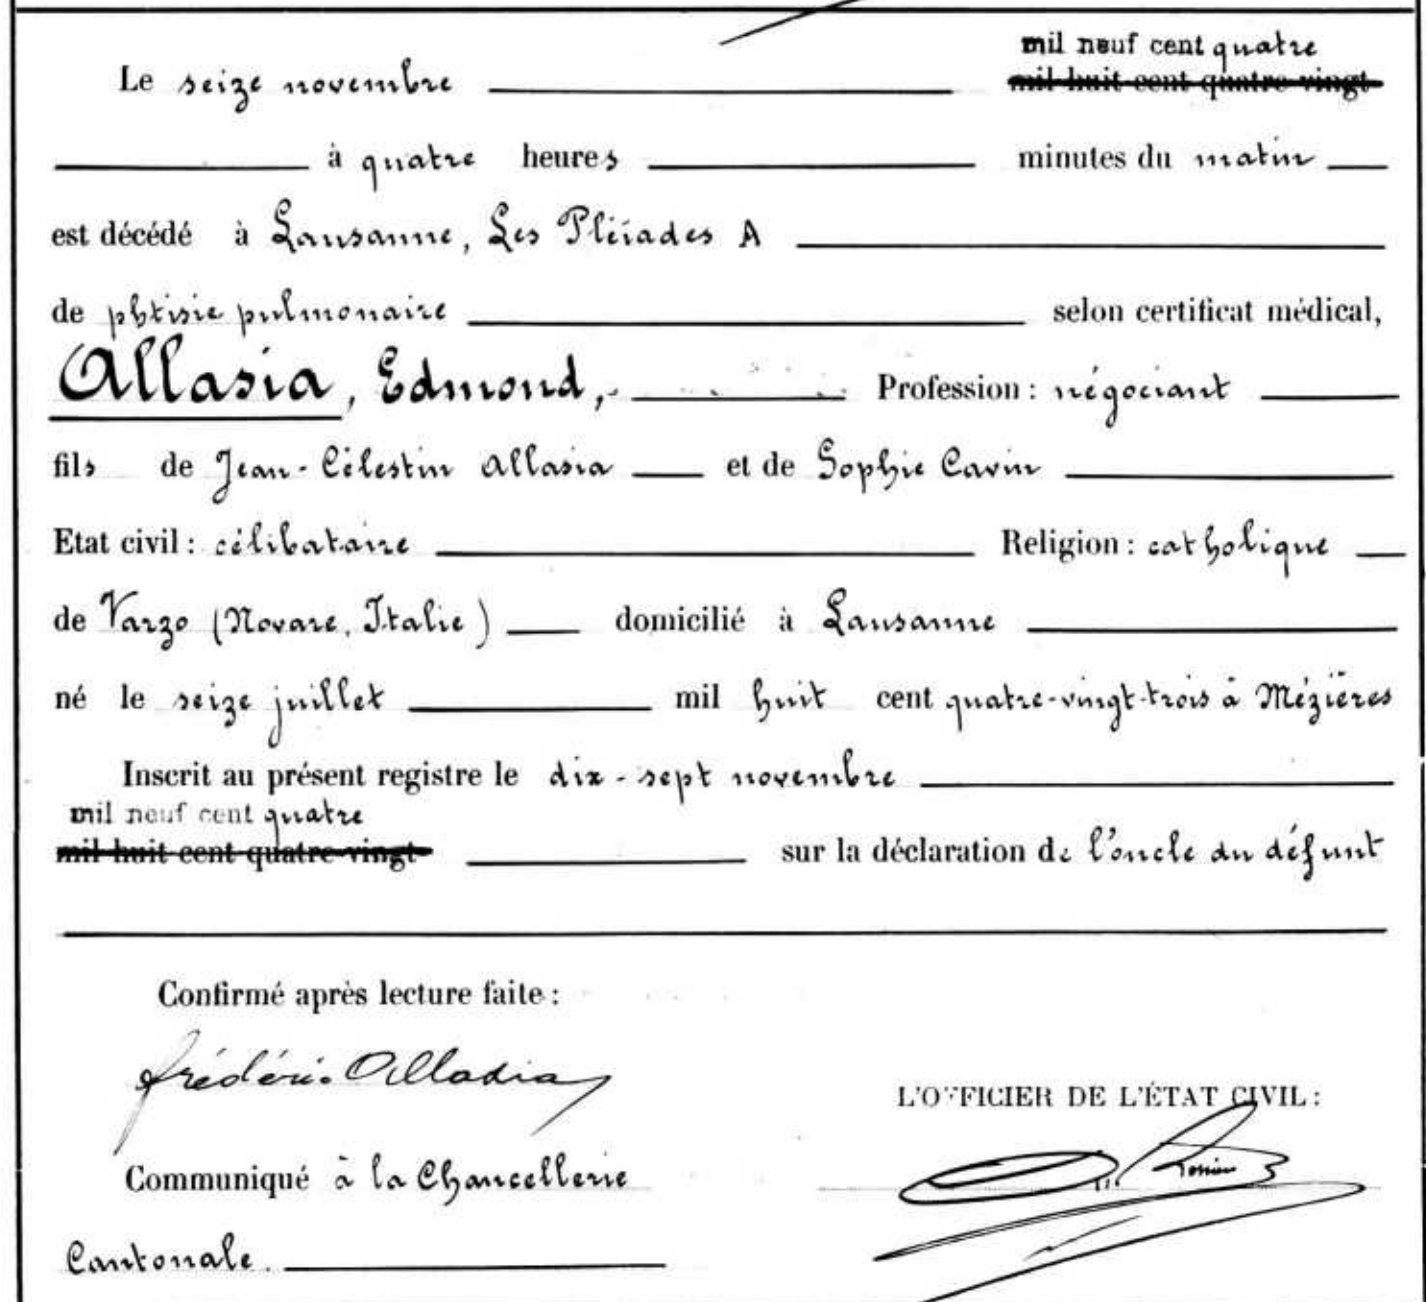 mil neuf cent quatre
Le seize novembre mil huit cent quatre-vingt
à quatre heures minutes du matin
est décédé à Lausanne, Les Pléiades A
de phtisie pulmonaire selon certificat médical,
Allasia, Edmond, Profession : négociant
fils de Jean-Célestin Allasia et de Sophie Cavin
Etat civil : célibataire Religion : catholique
de Varzo (Novare, Italie) domicilié à Lausanne
né le seize juillet mil huit cent quatre-vingt-trois à Mézières
Inscrit au présent registre le dix-sept novembre
mil neuf cent quatre
mil huit cent quatre-vingt sur la déclaration de l'oncle du défunt
Confirmé après lecture faite :
Frédéric Allasia
L'OFFICIER DE L'ÉTAT CIVIL :
Communiqué à la Chancellerie
Cantonale.